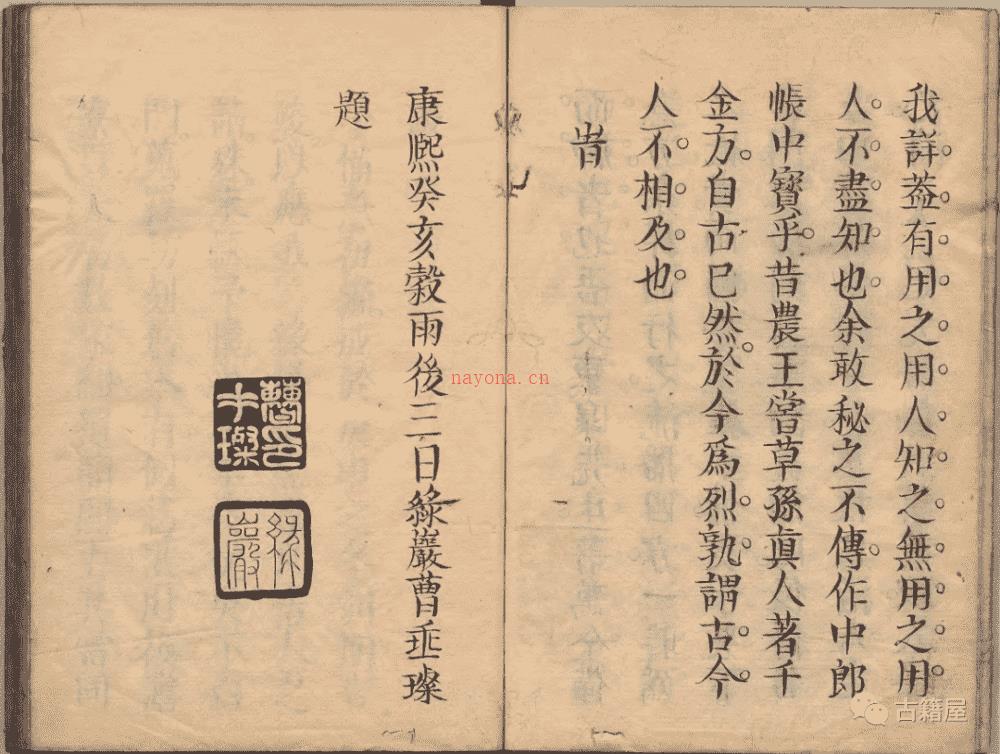 我詳。葢有用之用人知之。無用之用。
人。不盡知。也。余敢秘之不傳。作中郎
帳中寶乎。昔農王嘗草孫真人著千
金方。自古已然。於今爲烈。孰謂。古。今。
人。不。相。及。也。
旹
康熈癸亥榖雨後三日綠巖曹垂璨
題
曹印
垂璨
綠巖
nayona.cn
古籍屋